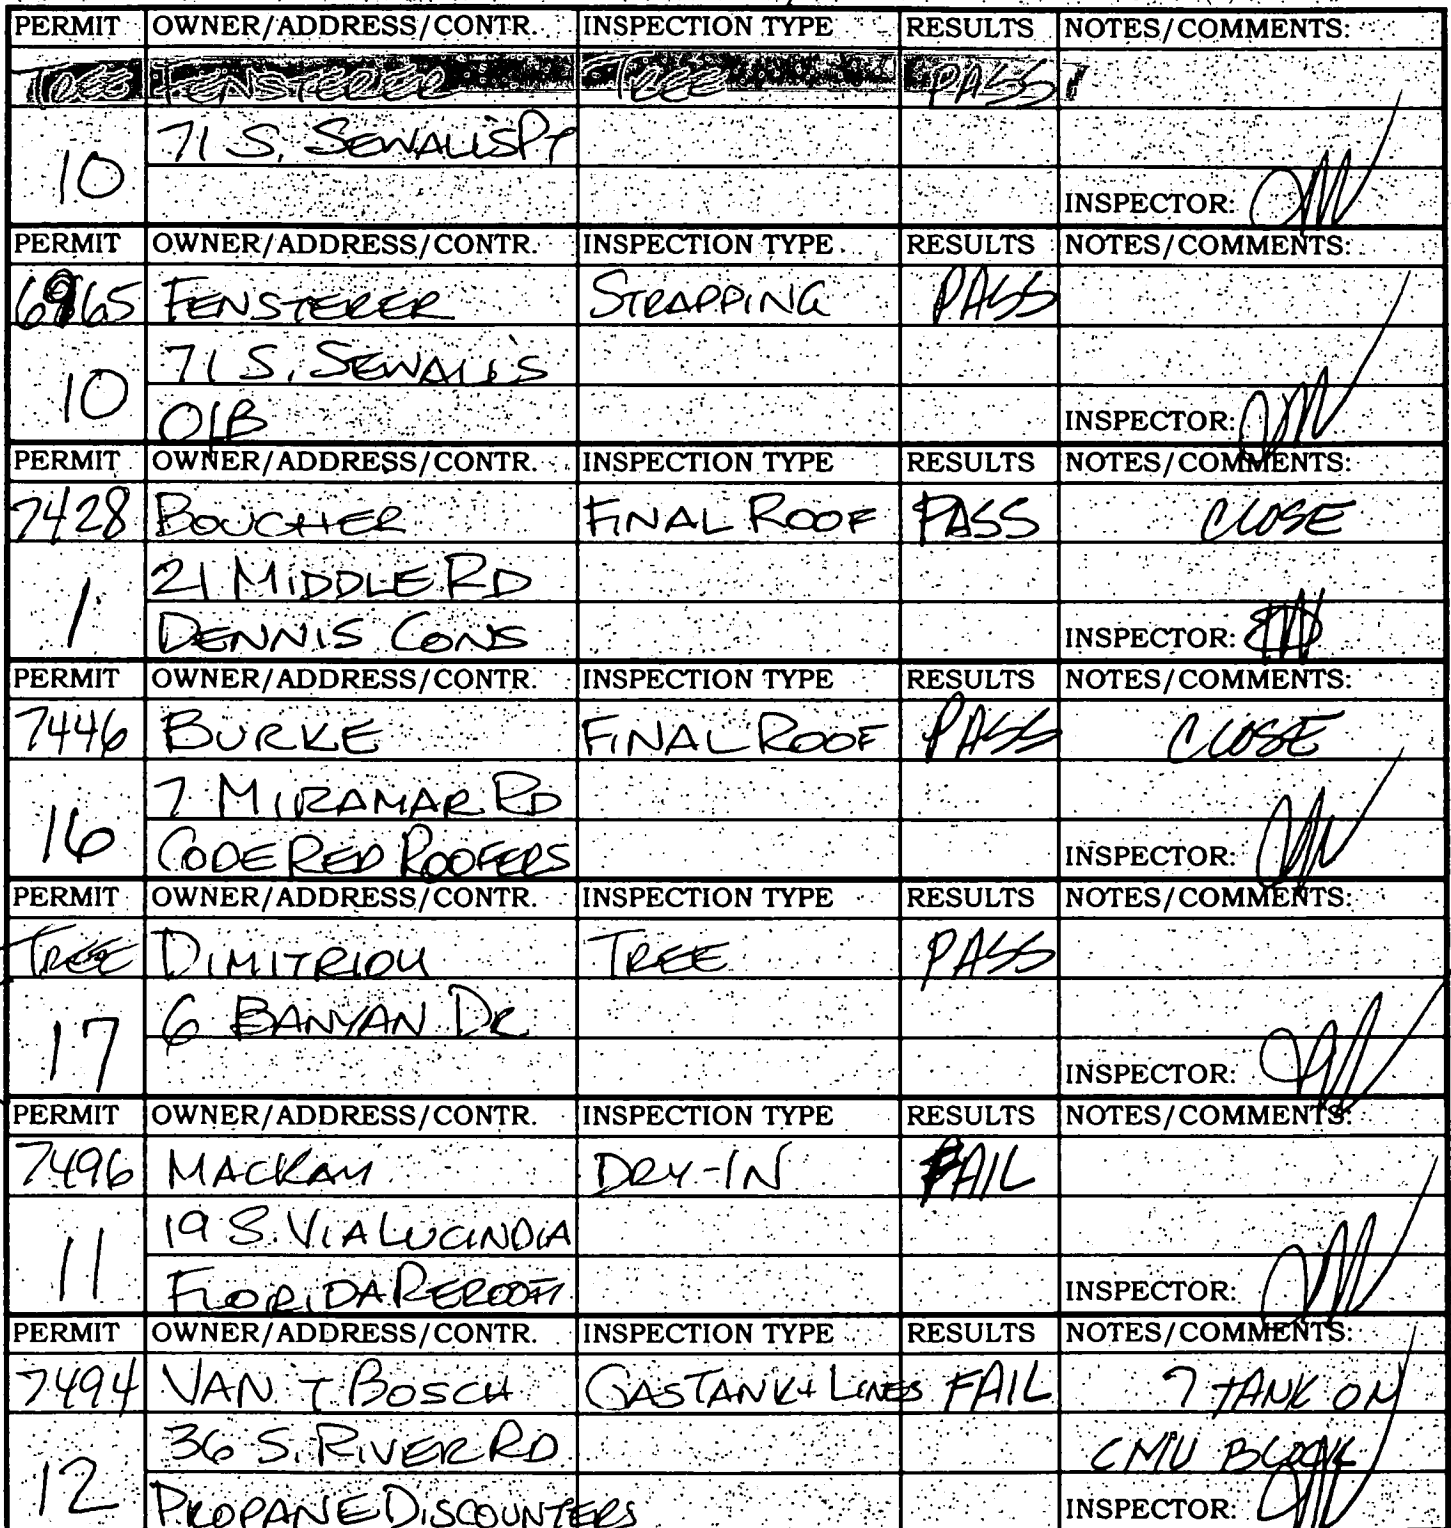 PERMIT OWNER/ADDRESS/CONTR. INSPECTION TYPE RESULTS NOTES/COMMENTS:
TREE FENSTERER TREE PASS
71 S. SEWALLS PT
10
INSPECTOR:
PERMIT OWNER/ADDRESS/CONTR. INSPECTION TYPE RESULTS NOTES/COMMENTS:
6965 FENSTERER STRAPPING PASS
71 S. SEWALL'S
10
O/B INSPECTOR:
PERMIT OWNER/ADDRESS/CONTR. INSPECTION TYPE RESULTS NOTES/COMMENTS:
7428 BOUCHER FINAL ROOF PASS CLOSE
21 MIDDLE RD
1
DENNIS CONS INSPECTOR:
PERMIT OWNER/ADDRESS/CONTR. INSPECTION TYPE RESULTS NOTES/COMMENTS:
7446 BURKE FINAL ROOF PASS CLOSE
7 MIRAMAR RD
16
CODE RED ROOFERS INSPECTOR:
PERMIT OWNER/ADDRESS/CONTR. INSPECTION TYPE RESULTS NOTES/COMMENTS:
TREE DIMITRIOU TREE PASS
6 BANYAN DR
17
INSPECTOR:
PERMIT OWNER/ADDRESS/CONTR. INSPECTION TYPE RESULTS NOTES/COMMENTS:
7496 MACKAY DRY-IN FAIL
19 S. VIA LUCINDIA
11
FLORIDA REROOF INSPECTOR:
PERMIT OWNER/ADDRESS/CONTR. INSPECTION TYPE RESULTS NOTES/COMMENTS:
7494 VAN T BOSCH GAS TANK + LINES FAIL ? TANK ON
36 S. RIVER RD CMU BLOCK
12
PROPANE DISCOUNTERS INSPECTOR: